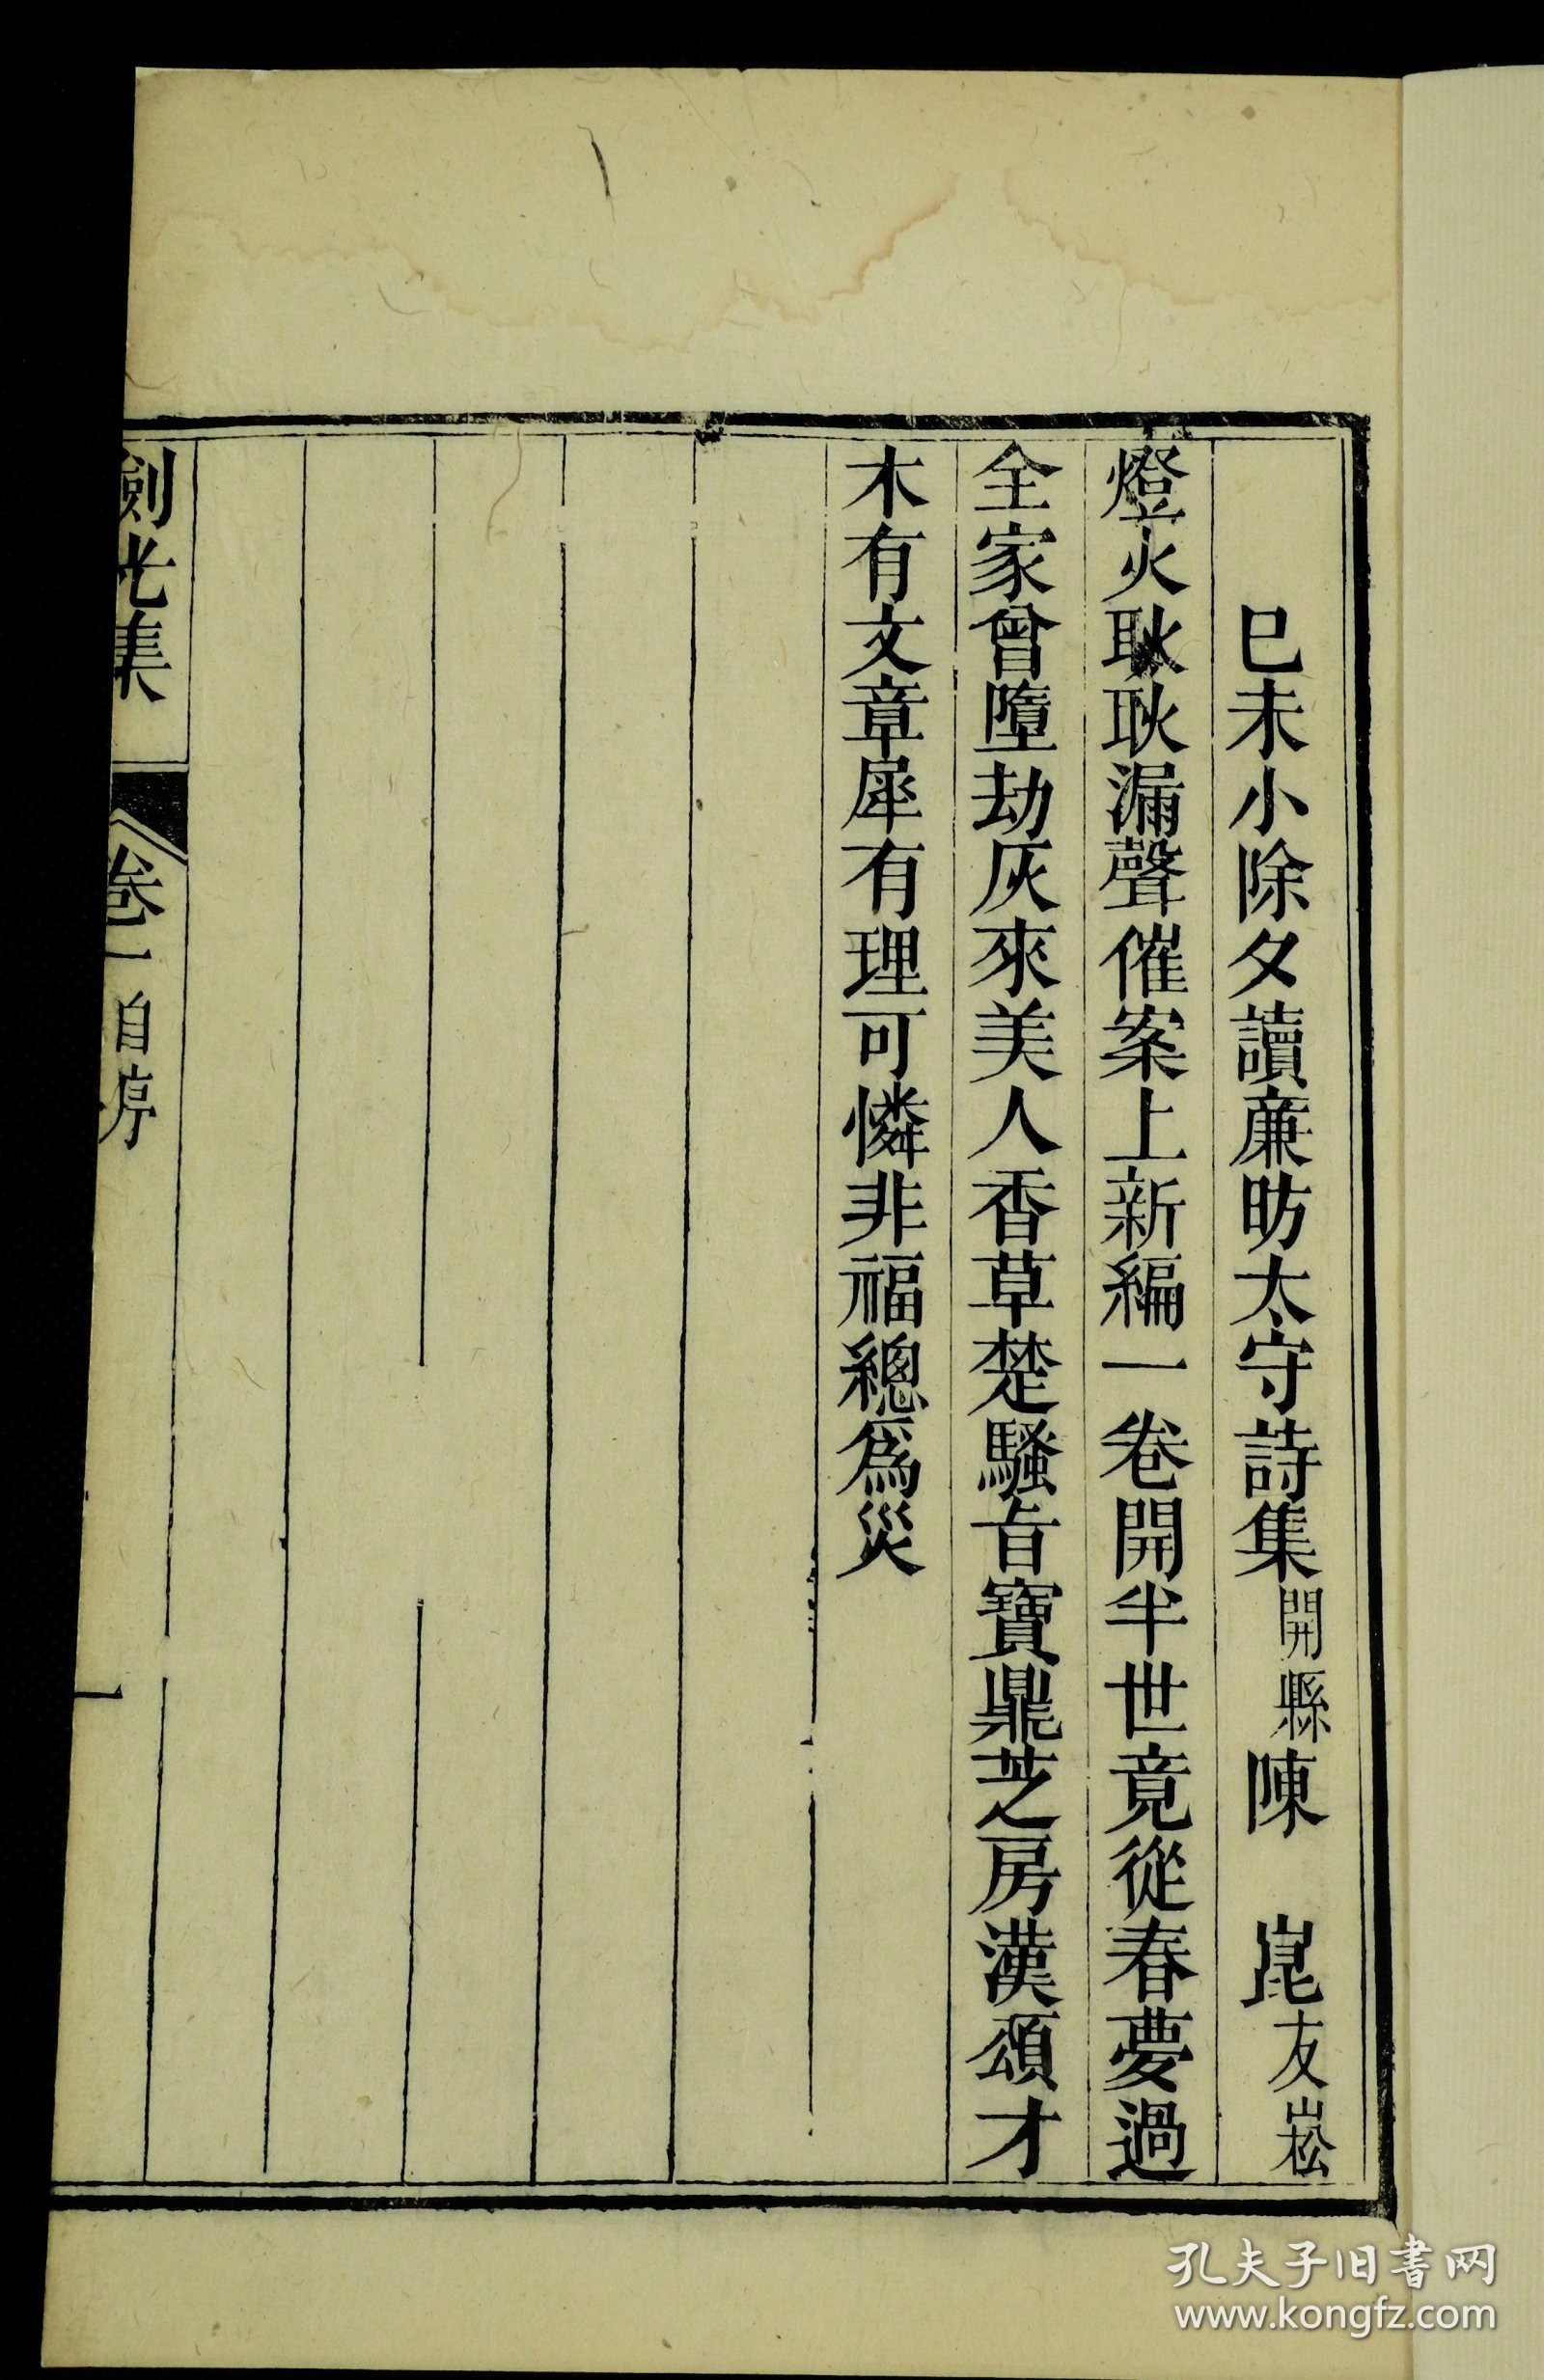 已未小除夕讀廉昉太守詩集開縣陳 崑友崧
燈火耿耿漏聲催案上新編一卷開半世竟從春夢過
全家曾墮劫灰來美人香草楚騷旨寶鼎芝房漢頌才
木有文章犀有理可憐非福總為災
劍光集 卷一自序 一
孔夫子旧書网
www.kongfz.com